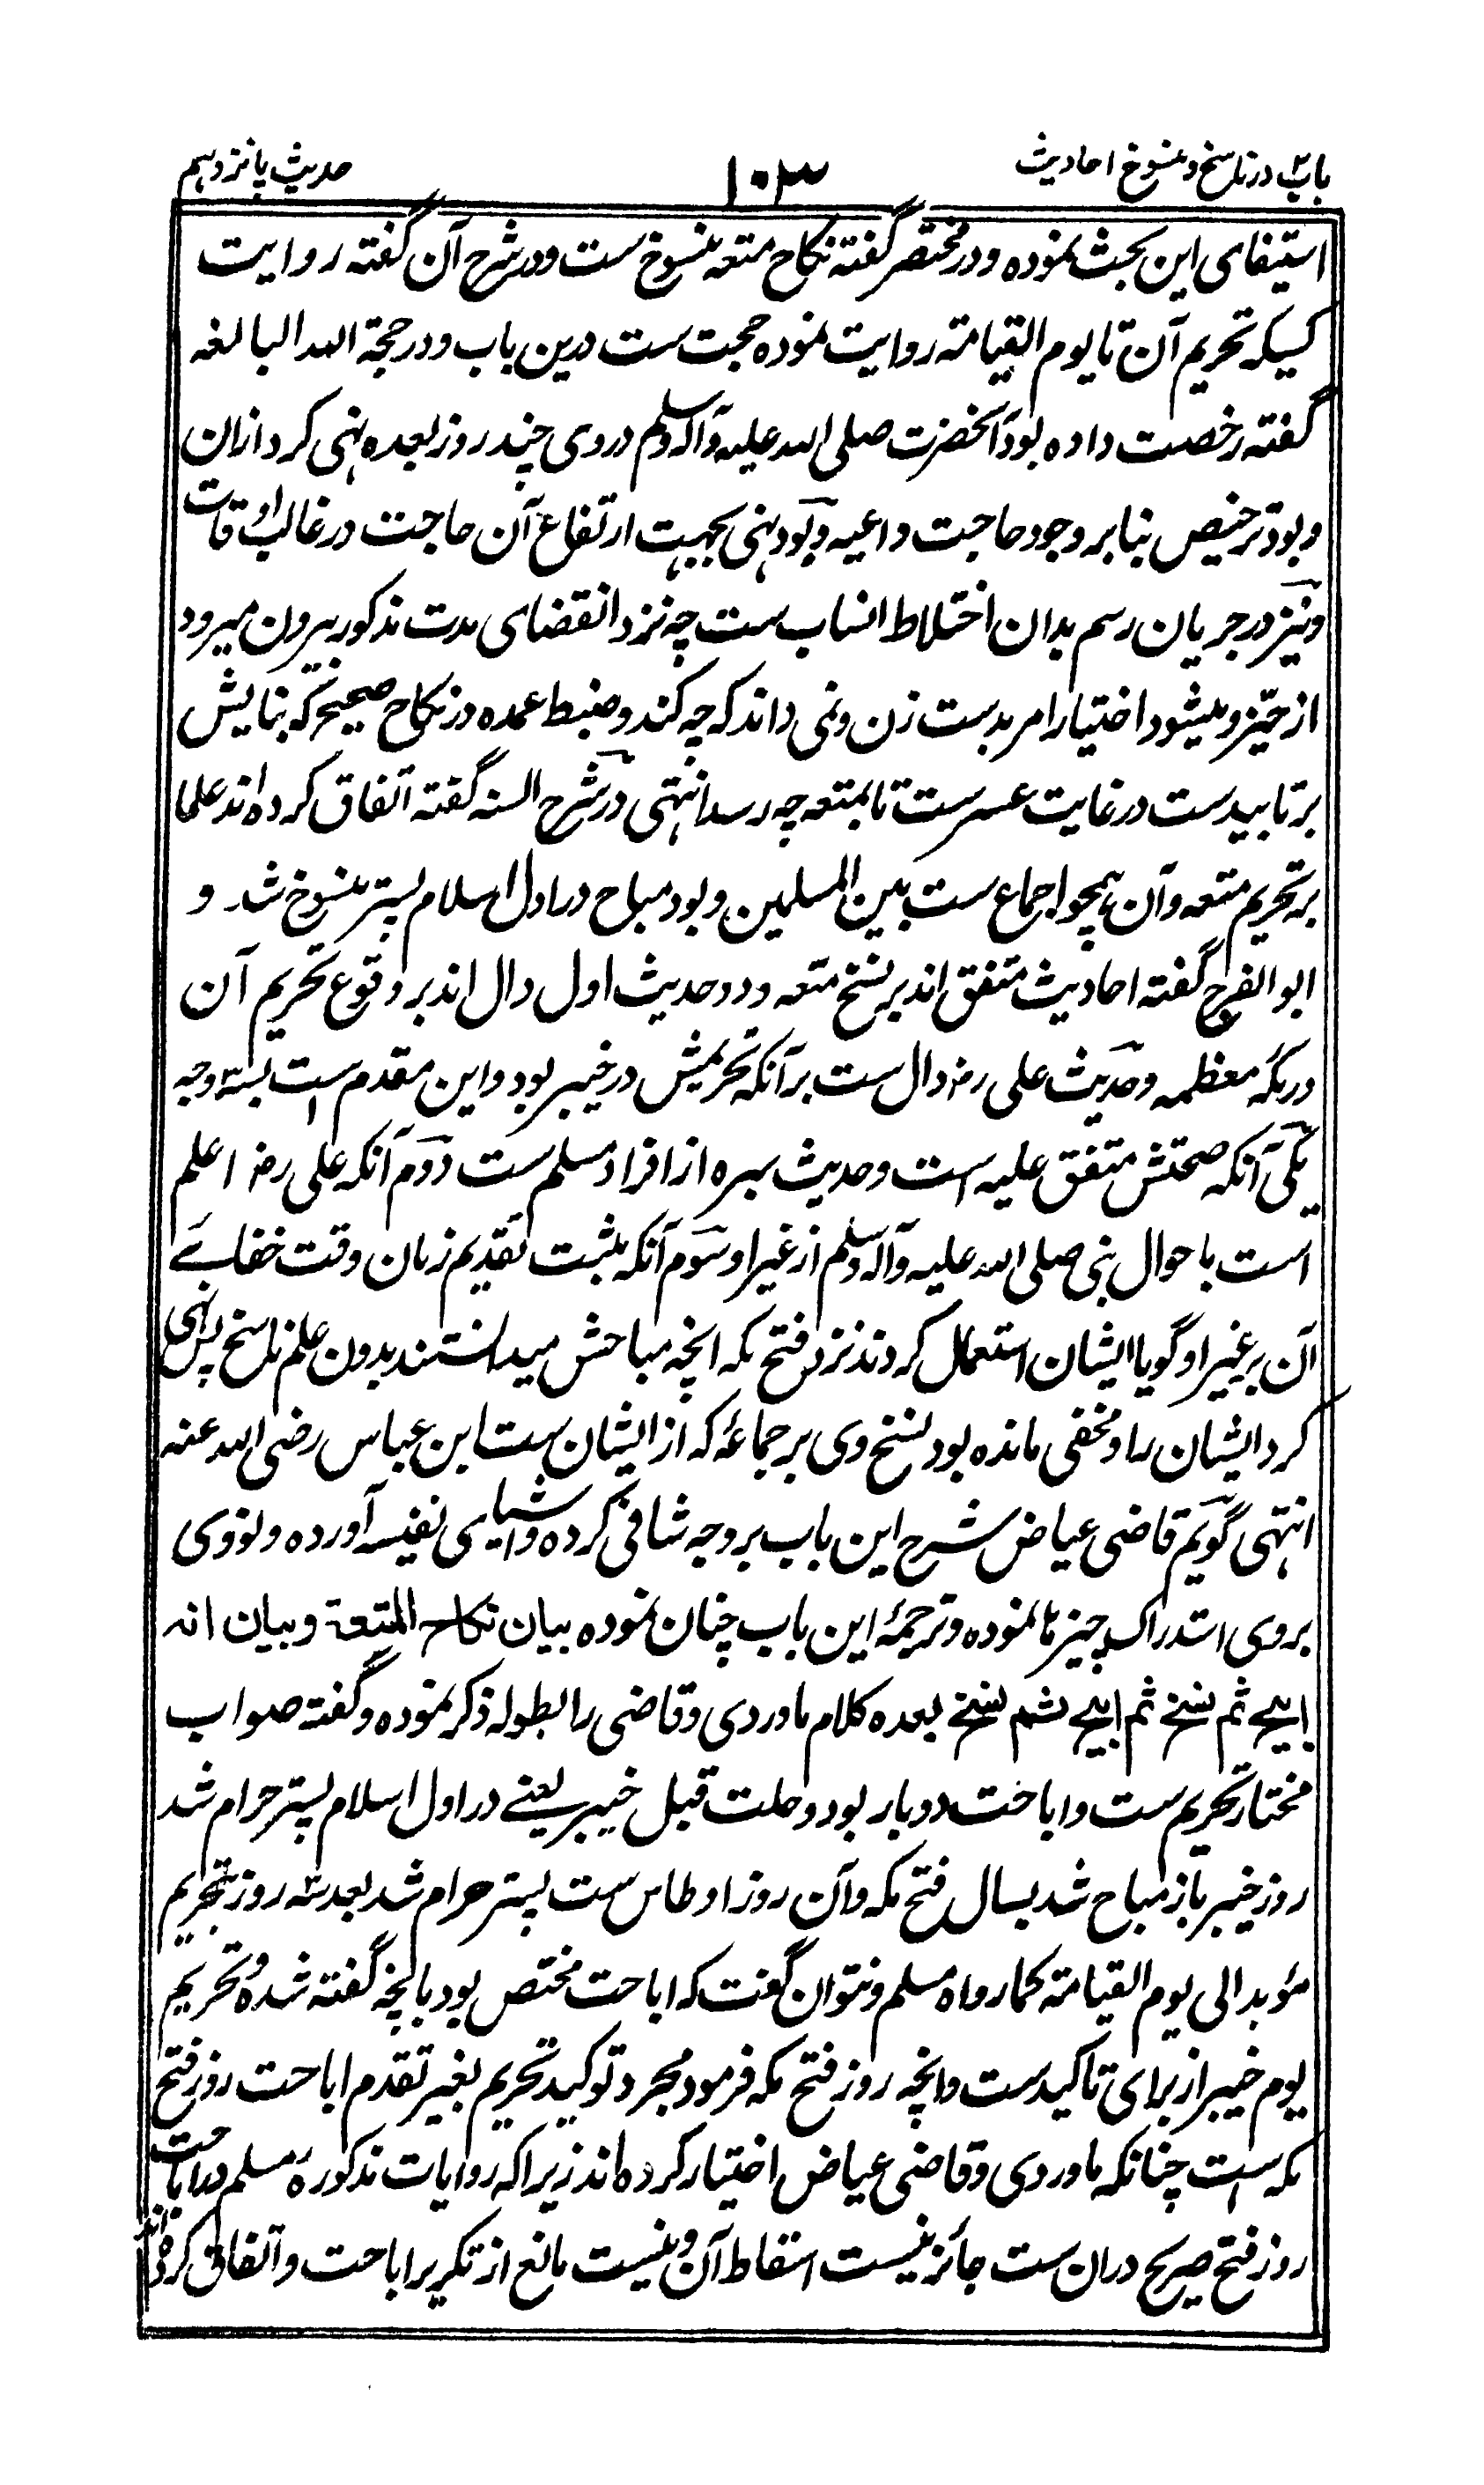 باب ۲ در ناسخ و منسوخ احادیث
۱۰۳
حدیث پانزدهم
استیفای این بحث نموده و در مختصر گفته نکاح متعه منسوخ ست و در شرح آن گفته روایت
کسیکه تحریم آن تا یوم القیامة روایت نموده حجت ست درین باب و در حجة الله البالغه
گفته رخصت داده بود آنحضرت صلی الله علیه وآله وسلم در وی چند روز بعده نهی کرد ازان
و بود ترخیص بنابر وجود حاجت داعیه و بود نهی بجهت ارتفاع آن حاجت در غالب اوقات
و نیز در جریان رسم بدان اختلاط انساب ست چه نزد انقضای مدت مذکور بیرون میرود
از حیّز و میشود اختیار امر بدست زن و نمی داند که چه کند و ضبط عده در نکاح صحیح که بنایش
بر تابید ست در غایت عسر ست تا بمتعه چه رسد انتهی در شرح السنه گفته اتفاق کرده اند علما
بر تحریم متعه و آن همچو اجماع ست بین المسلمین و بود مباح در اول اسلام پستر منسوخ شد و
ابو الفرج گفته احادیث متفق اند بر نسخ متعه و دو حدیث اول دال اند بر وقوع تحریم آن
در مکۀ معظمه و حدیث علی رضـ دال ست بر آنکه تحریمش در خیبر بود و این مقدم است بسه وجه
یکی آنکه صحتش متفق علیه است و حدیث سبره از افراد مسلم ست دوم آنکه علی رضـ اعلم
است باحوال نبی صلی الله علیه وآله وسلم از غیر او سوم آنکه مثبت تقدیم زمان وقت خفائے
آن بر غیر او گویا ایشان استعمال کردند نزد فتح مکه انچه مباحش میدانستند بدون علم ناسخ پس نهی
کرد ایشان را و مخفی مانده بود نسخ وی بر جماعۀ که از ایشان ست ابن عباس رضی الله عنه
انتهی گویم قاضی عیاض شرح این باب بر وجه شافی کرده و اشیای نفیسه آورده و نووی
بر وی استدراک چیزها نموده و ترجمۀ این باب چنان نموده بیان نکاح المتعة وبیان انه
ابیح ثم نسخ ثم ابیح ثم نسخ بعده کلام ماوردی و قاضی را بطوله ذکر نموده و گفته صواب
مختار تحریم ست و اباحت دو بار بود و حلت قبل خیبر یعنے در اول اسلام پستر حرام شد
روز خیبر باز مباح شد بسال فتح مکه و آن روز اوطاس ست پستر حرام شد بعد سه روز بتحریم
مؤبد الی یوم القیامة کما رواه مسلم و نتوان گفت که اباحت مختص بود بانچه گفته شد و تحریم
یوم خیبر از برای تاکید ست و انچه روز فتح مکه فرمود مجرد توکید تحریم بغیر تقدم اباحت روز فتح
مکه است چنانکه ماوردی و قاضی عیاض اختیار کرده اند زیرا که روایات مذکوره مسلم در اباحت
روز فتح صریح دران ست جائز نیست اسقاط آن و نیست مانع از تکریر اباحت و اتفاق کرده اند